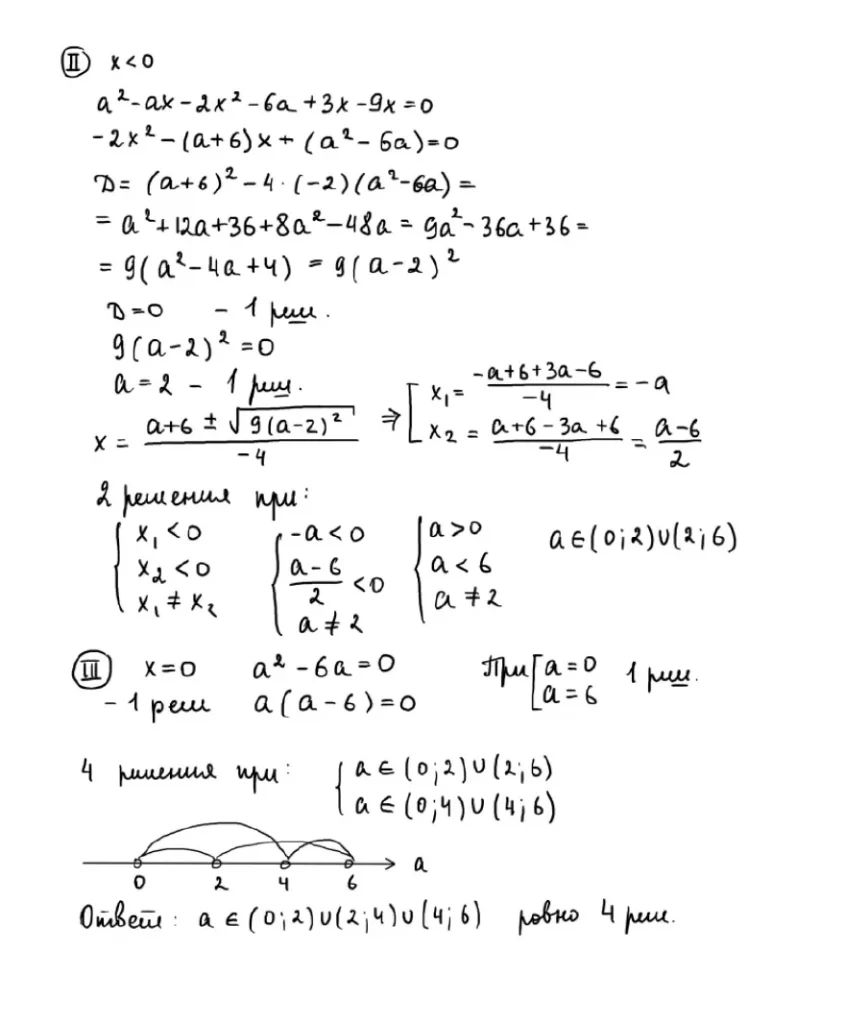 II x < 0
a² - ax - 2x² - 6a + 3x - 9x = 0
-2x² - (a+6)x + (a² - 6a) = 0
D = (a+6)² - 4·(-2)(a²-6a) =
= a² + 12a + 36 + 8a² - 48a = 9a² - 36a + 36 =
= 9(a² - 4a + 4) = 9(a-2)²
D = 0 - 1 реш.
9(a-2)² = 0
a = 2 - 1 реш.
x = (a+6 ± √(9(a-2)²))/(-4) ⇒ [ x₁ = (-a+6+3a-6)/(-4) = -a
x₂ = (a+6-3a+6)/(-4) = (a-6)/2
2 решения при:
{ x₁ < 0 { -a < 0 { a > 0 a ∈ (0;2)∪(2;6)
x₂ < 0 (a-6)/2 < 0 a < 6
x₁ ≠ x₂ a ≠ 2 a ≠ 2
III x = 0 a² - 6a = 0 При [ a = 0 1 реш.
- 1 реш a(a-6) = 0 a = 6
4 решения при: { a ∈ (0;2)∪(2;6)
a ∈ (0;4)∪(4;6)
a
0 2 4 6
Ответ: a ∈ (0;2)∪(2;4)∪(4;6) ровно 4 реш.